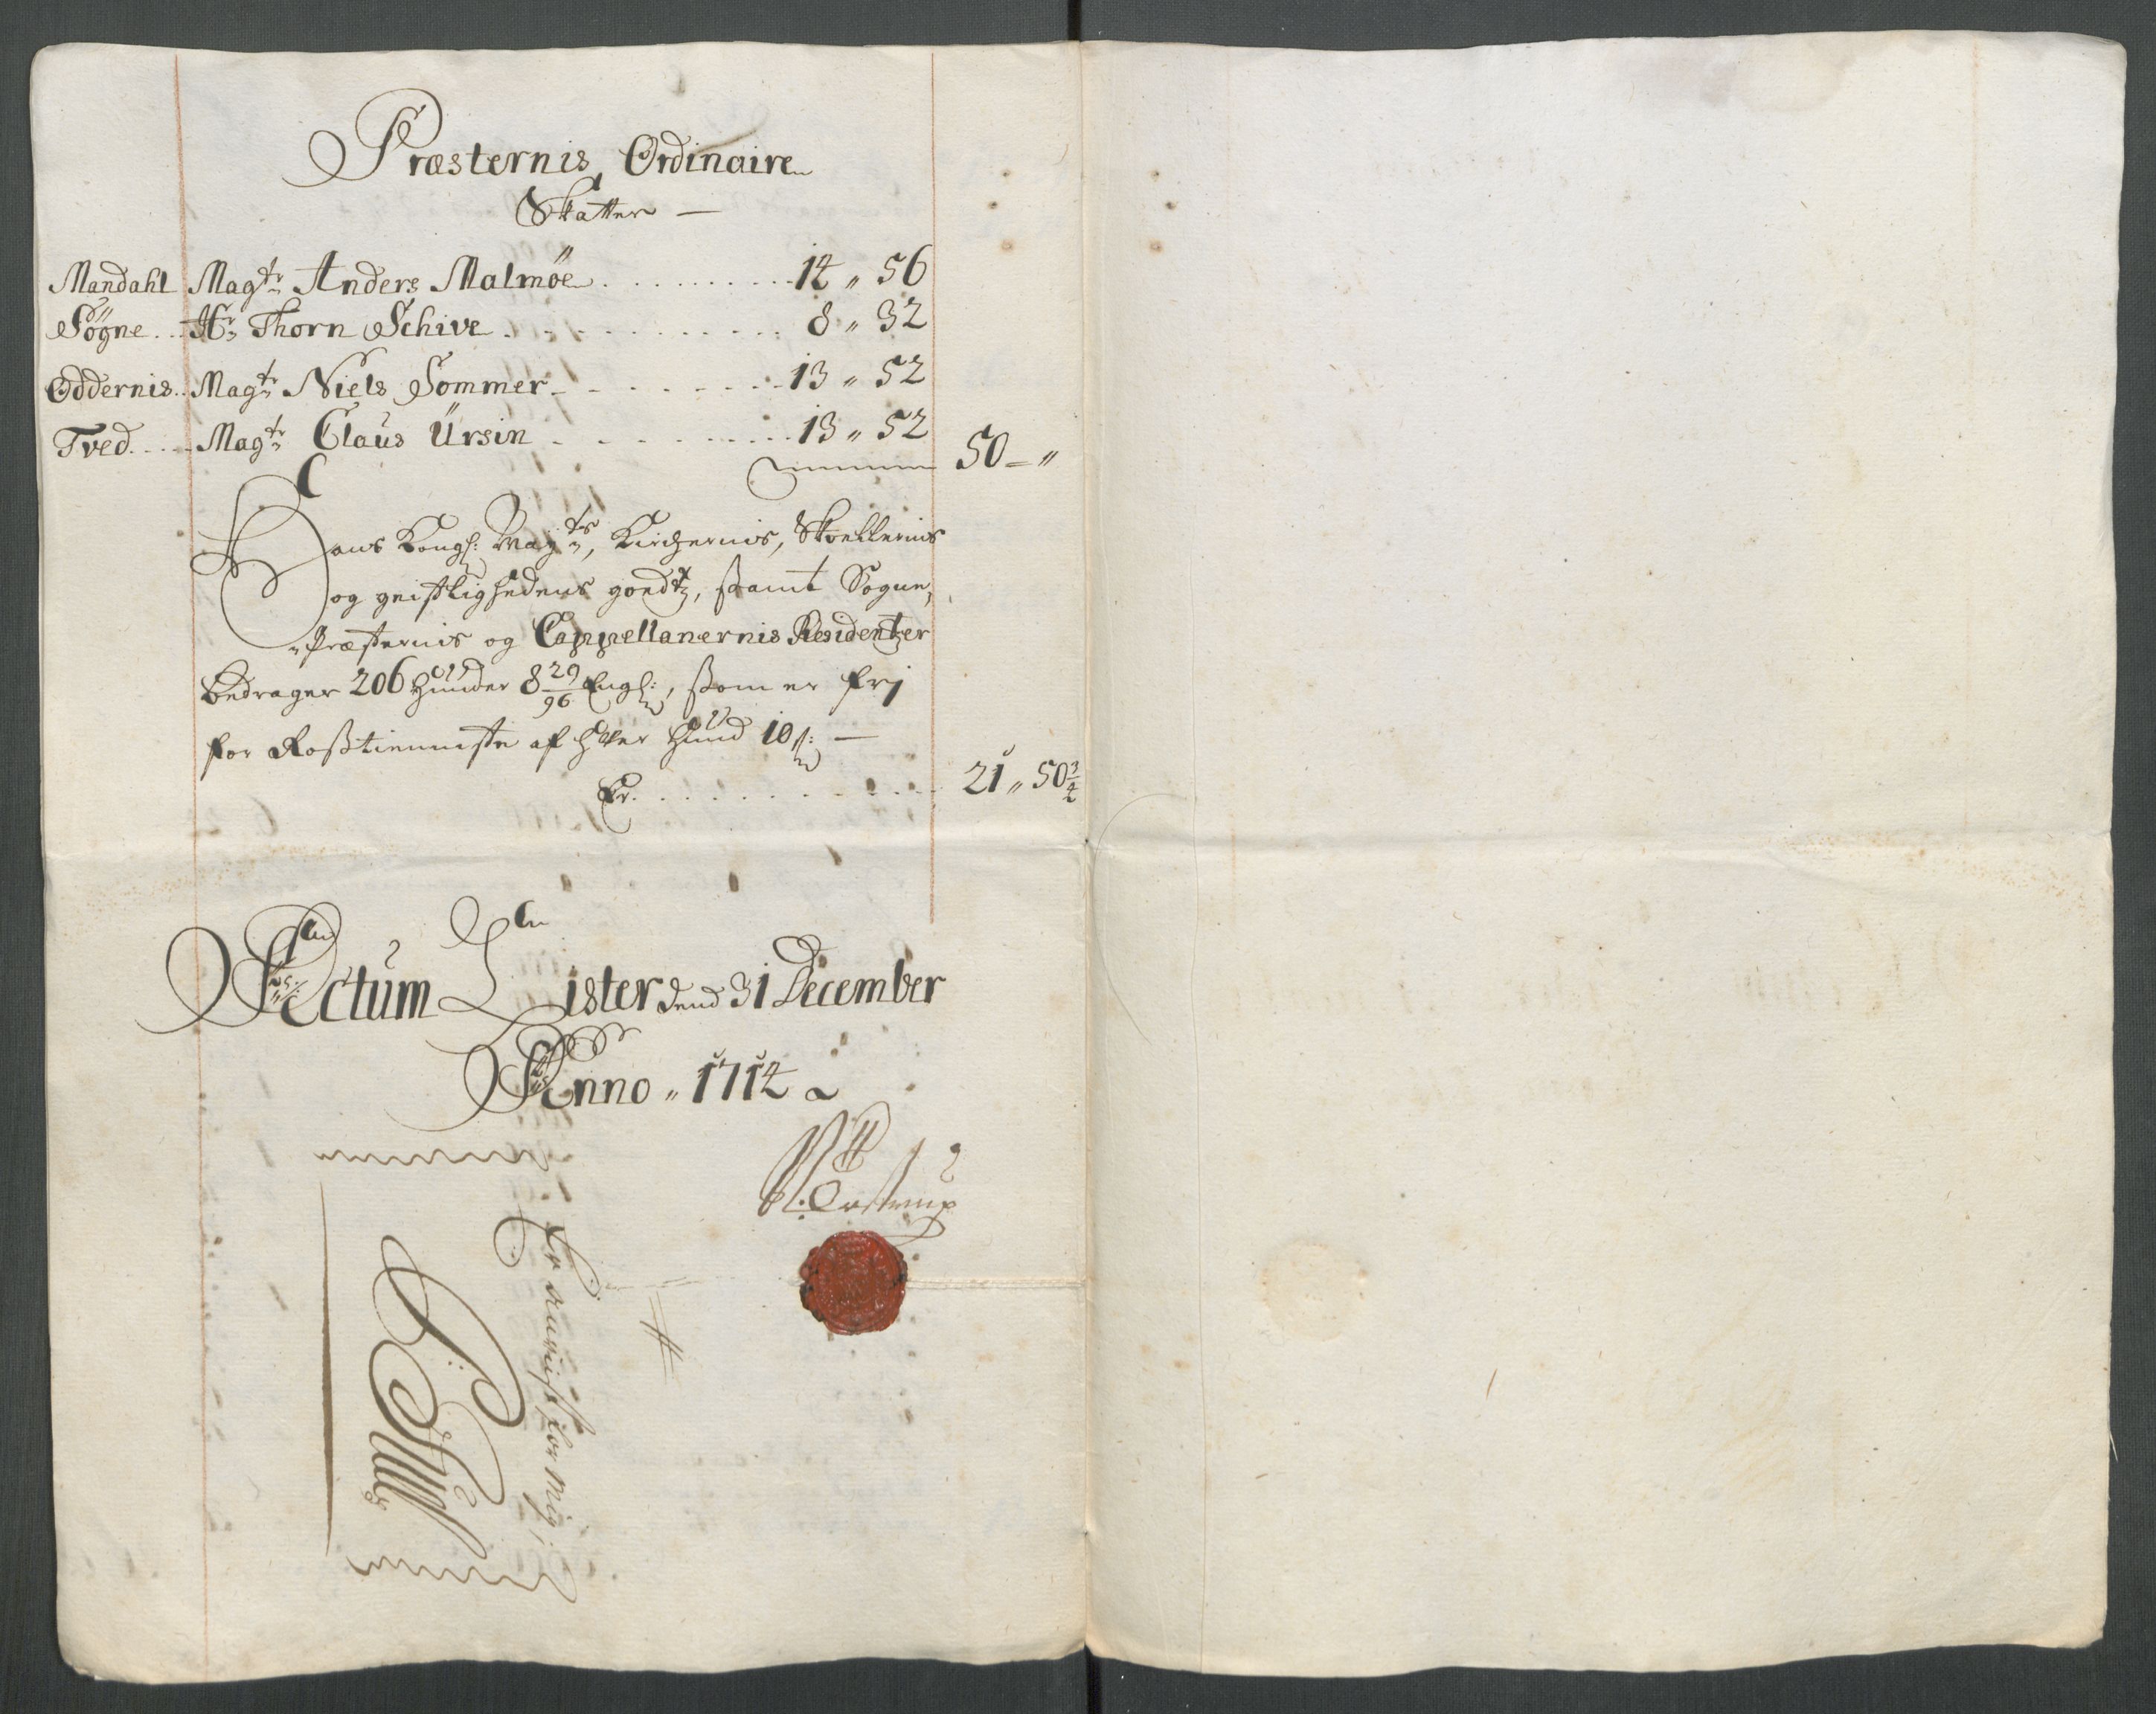 Præsternis Ordinaire
Skatter —
Mandahl Magtr Anders Malmöe . . . . . . . . . 14 „ 56
Sögne . . Hr Thorn Schive . . . . . . . . . 8 „ 32
Oddernis . . Magtr Niels Sommer . . . . . . . . 13 „ 52
Tved . . . . Magtr Claus Ursin . . . . . . . . . 13 „ 52
50 = „
Hans Kongl: Maytz, Kirchernis, Skoellernis
og geistlighedens goedtz, samt Sogne,
Præsternis og Cappellanernis Residentzer
bedrager 206 Huuder 8 29/96 Engl:, som er frj
for Rosstienniste af hver Huud 10 s: —
Er . . . . . . . . . . . 21 „ 50 3/4
Actum Lister dend 31 December
Anno „ 1714